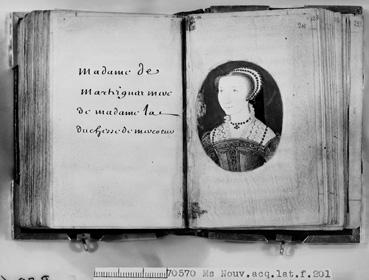 madame de
martiguar mere
de madame la
duchesse de mercœur
70570 Ms Nouv.acq.lat.f.201